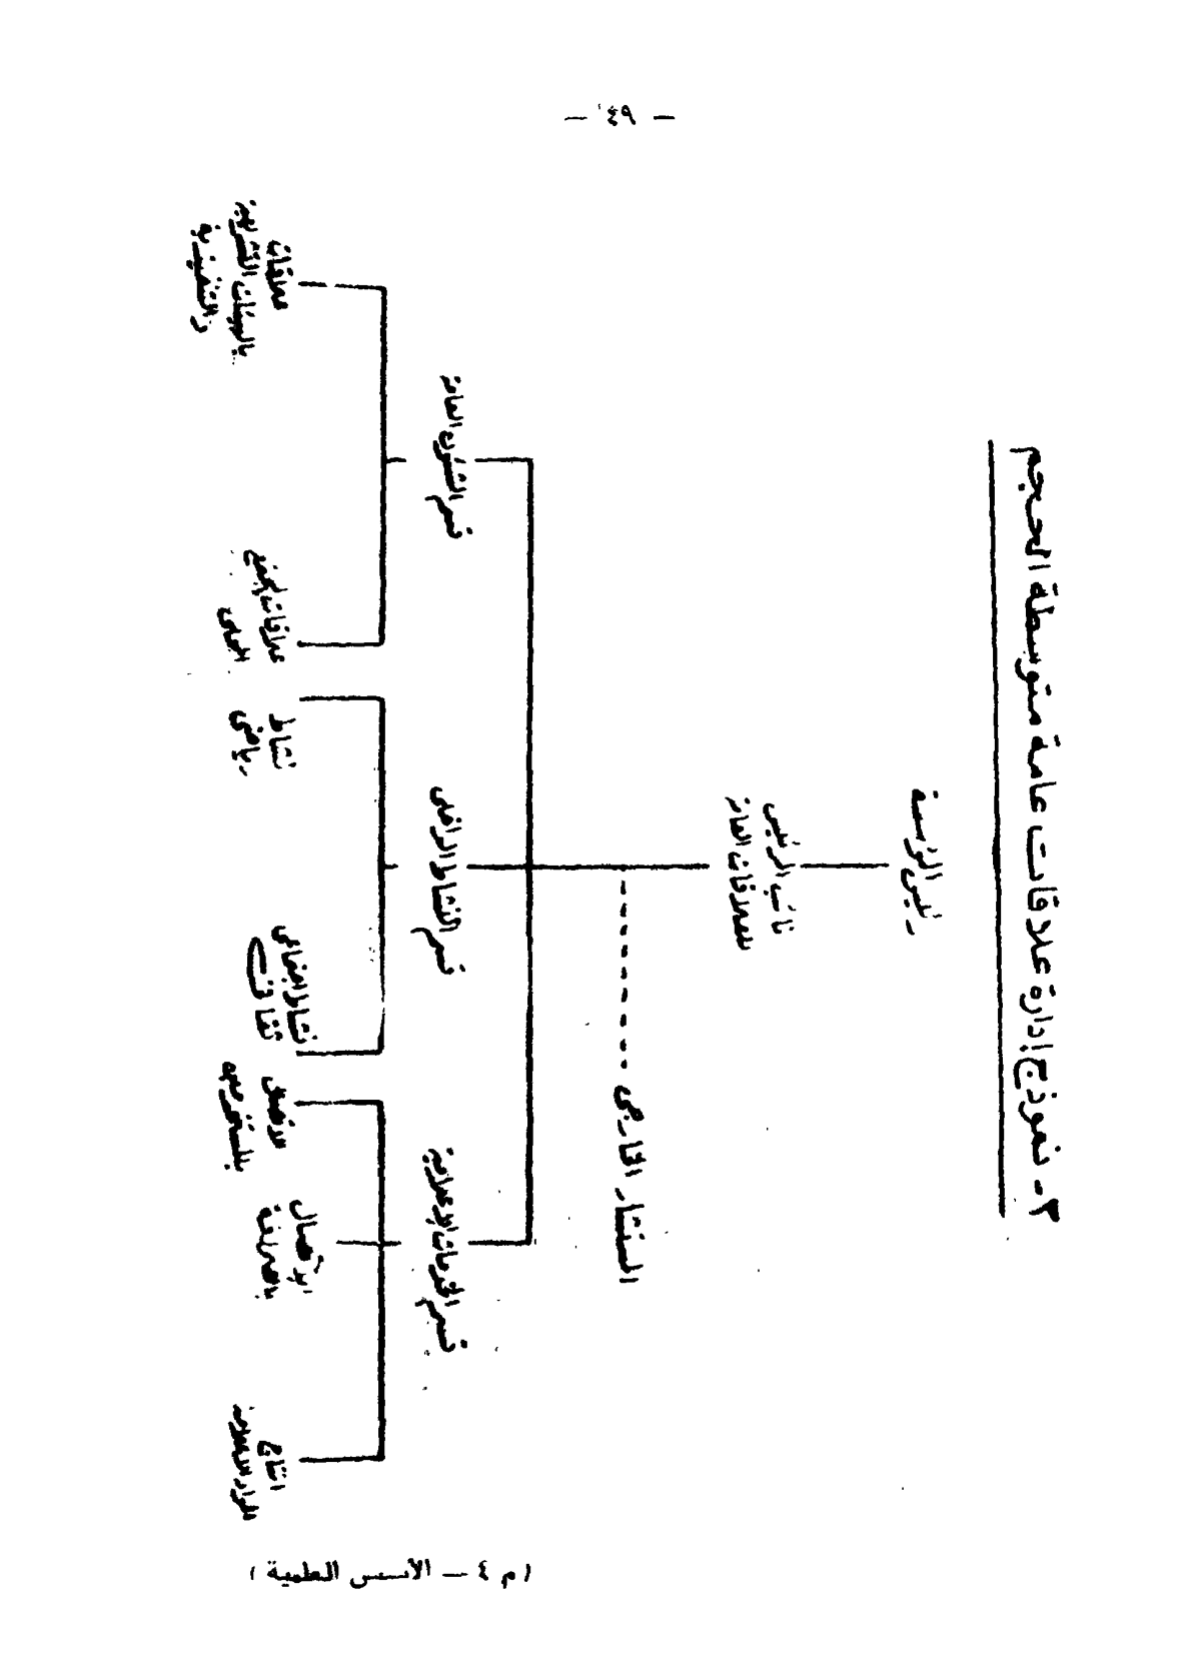 — ٤٩ —
٣ - نموذج إدارة علاقات عامة متوسطة الحجم
رئيس المؤسسة
نائب الرئيس
للعلاقات العامة
المستشار الخارجى
قسم الخدمات الإعلامية
قسم النشاط الداخلى
قسم الشئون العامة
انتاج
المواد الاعلامية
الاتصال
بالصحافة
الاتصال
نشاط اجتماعى
ثقافى
نشاط
رياضى
علاقات المجتمع
المحلى
علاقات
بالهيئات التشريعية
والتنفيذية
( م ٤ — الأسس العلمية )